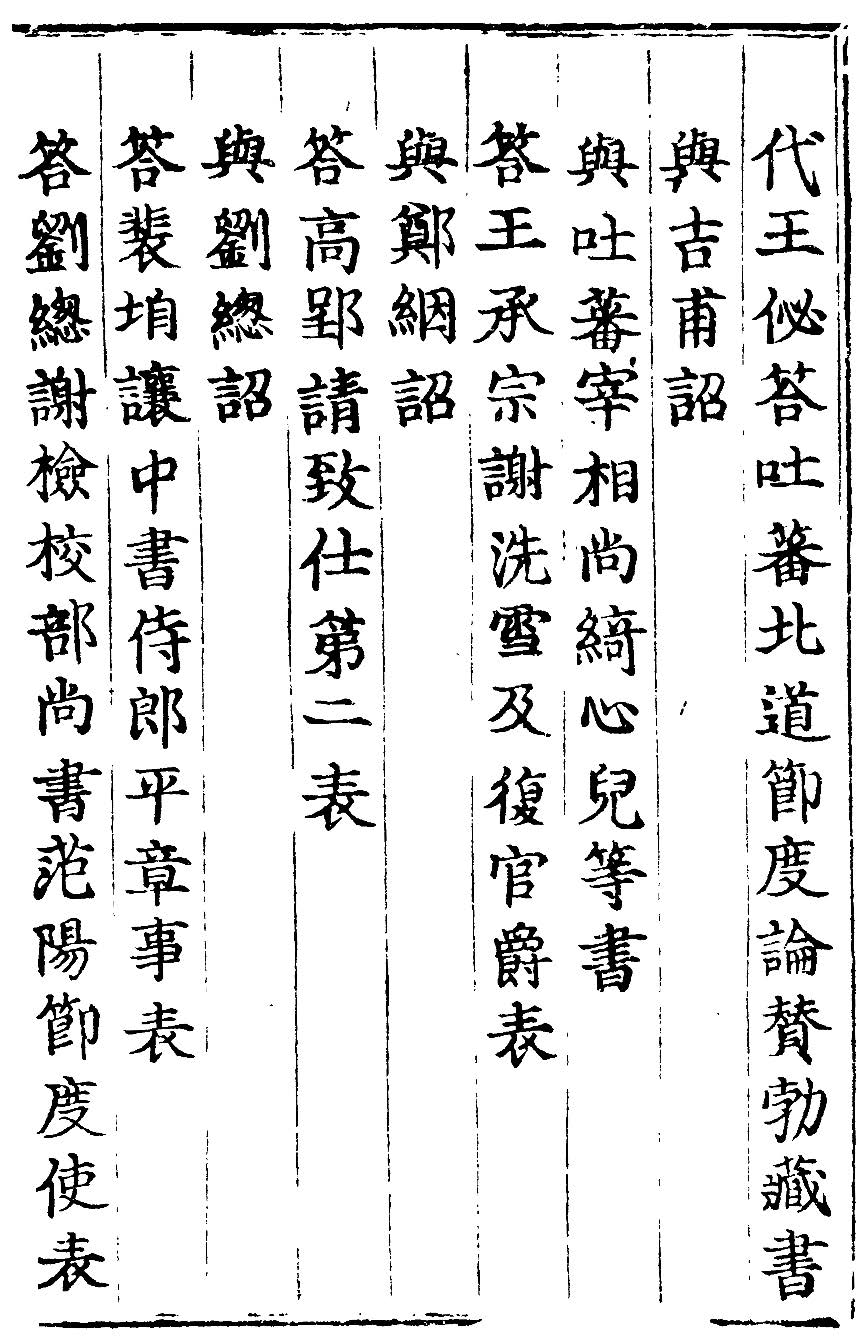 代王佖荅吐蕃北道節度論贊勃藏書
與吉甫詔
與吐蕃宰相尚綺心兒等書
荅王承宗謝洗雪及復官爵表
與鄭絪詔
荅高郢請致仕第二表
與劉總詔
荅裴垍讓中書侍郎平章事表
荅劉總謝檢校部尚書范陽節度使表